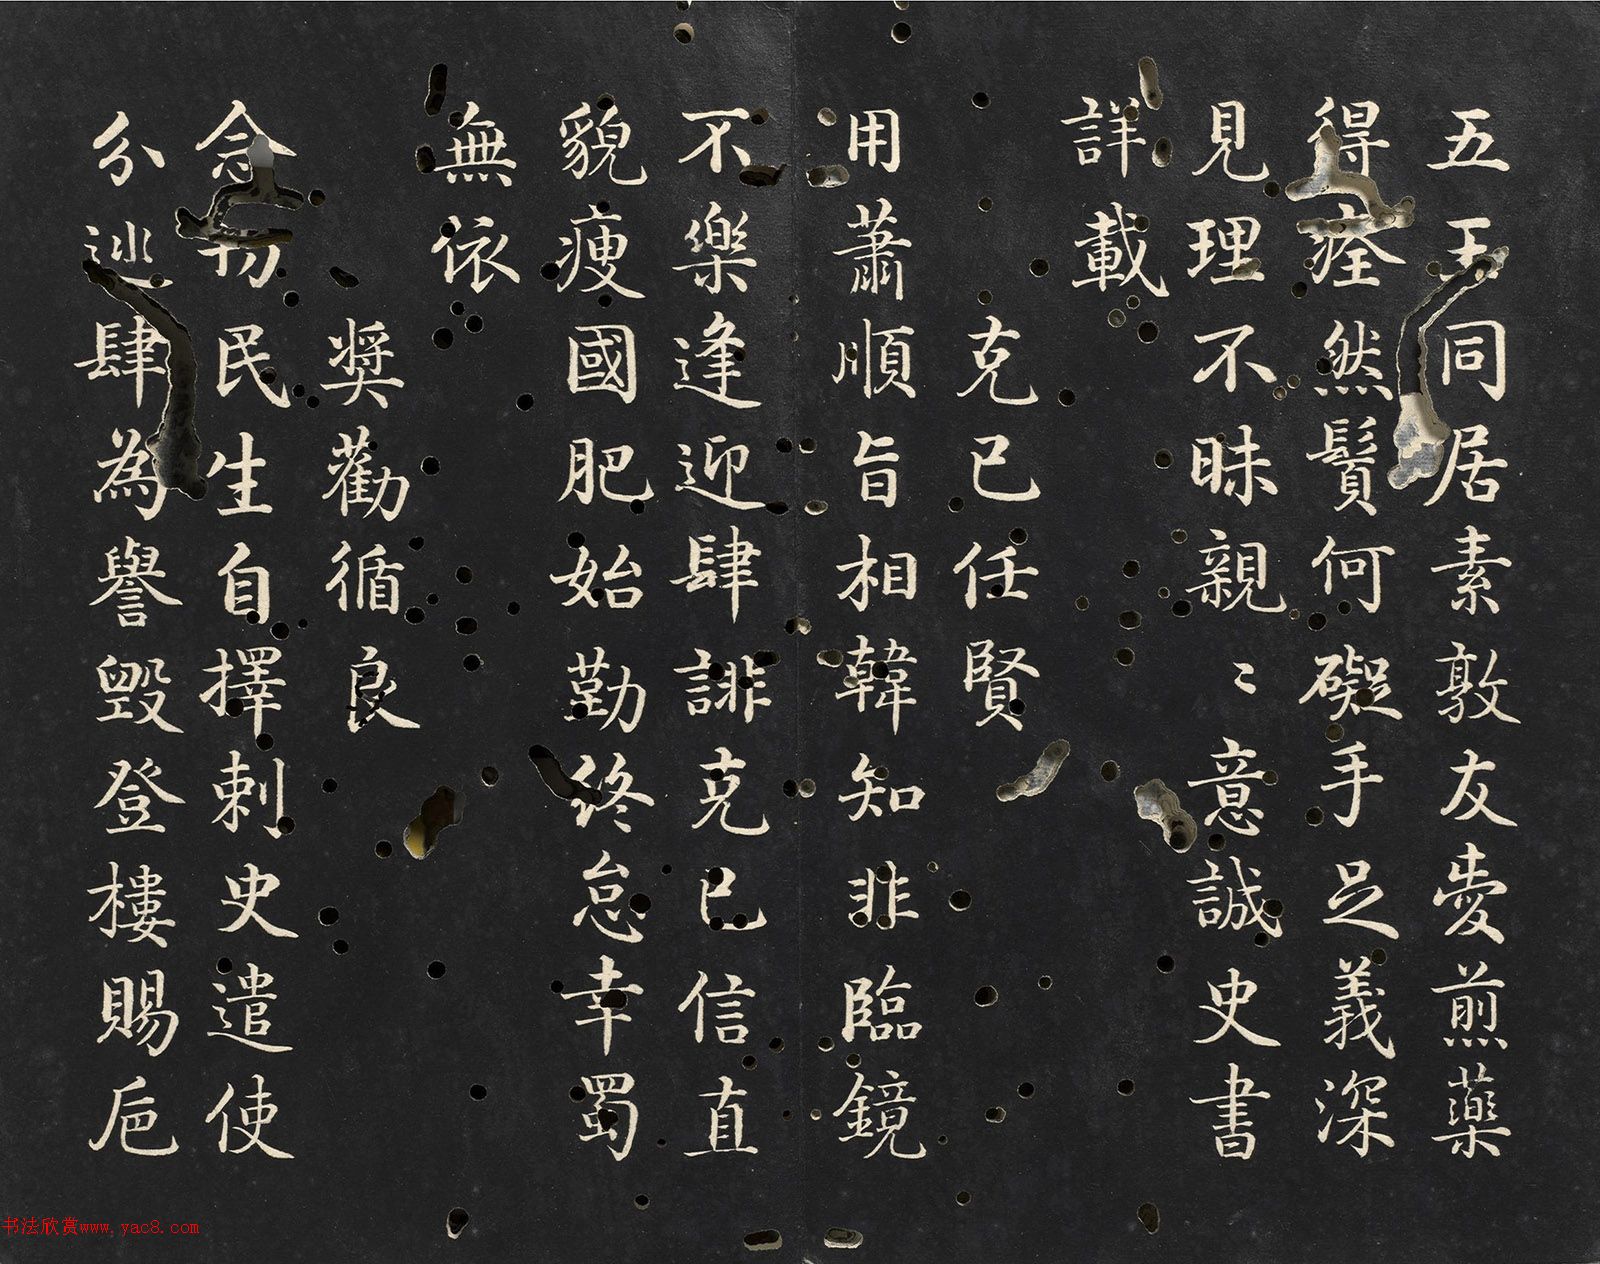 五王同居素敦友愛煎藥
得痊然鬢何礙手足義深
見理不昧親〻意誠史書
詳載
克己任賢
用蕭順旨相韓知非臨鏡
不樂逢迎肆誹克己信直
貌瘦國肥始勤終怠幸蜀
無依
奬勸循良
念切民生自擇刺史遣使
分巡肆為譽毀登樓賜卮
书法欣赏www.yac8.com